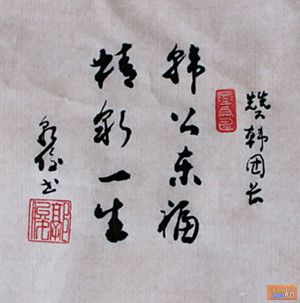 赞韩团长
韩公东福
精彩一生
书